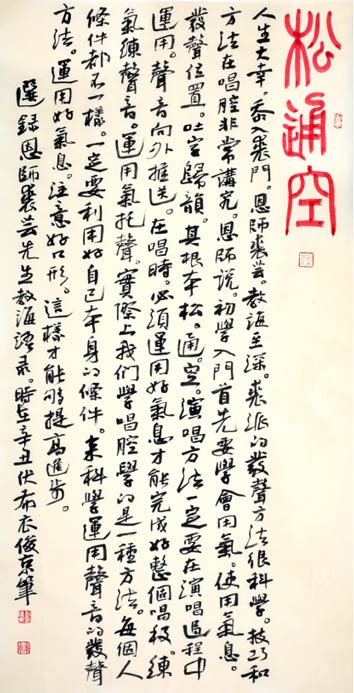 松通空
人生大幸。忝入裘門。恩師裘芸。教誨至深。裘派的發聲方法很科學。技巧和
方法在唱腔非常講究。恩師說。初學入門首先要學會用氣。使用氣息。
發聲位置。吐字歸韻。其根本松。通。空。演唱方法一定要在演唱過程中
運用。聲音向外推送。在唱時。必須運用好氣息才能完成好整個唱段。練
氣練聲音。運用氣托聲。實際上我們學唱腔學的是一種方法。每個人
條件都不一樣。一定要利用好自己本身的條件。來科學運用聲音的發聲
方法。運用好氣息。注意好口形。這樣才能够提高進步。
選録恩師裘芸先生教誨語录。時在辛丑伏布衣俊京筆